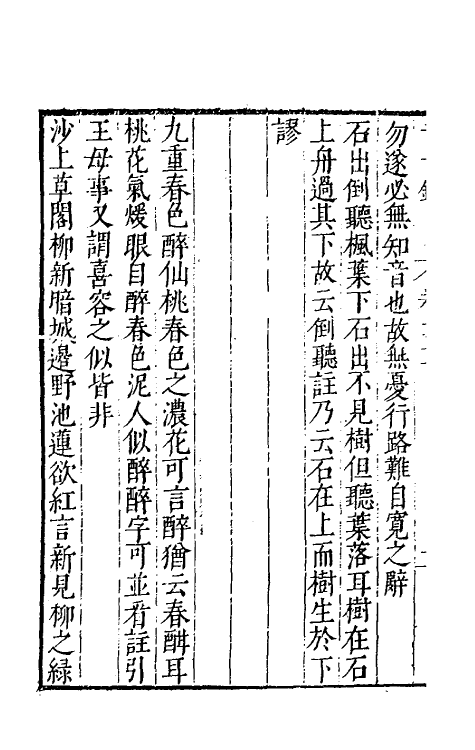 勿遂必無知音也故無憂行路難自寬之辭
石出倒聽楓葉下石出不見樹但聽葉落耳樹在石
上舟過其下故云倒聽註乃云石在上而樹生於下
謬
九重春色醉仙桃春色之濃花可言醉猶云春酣耳
桃花氣煖眼自醉春色泥人似醉醉字可並看註引
王母事又謂喜容之似皆非
沙上草閣柳新暗城邊野池蓮欲紅言新見柳之緑